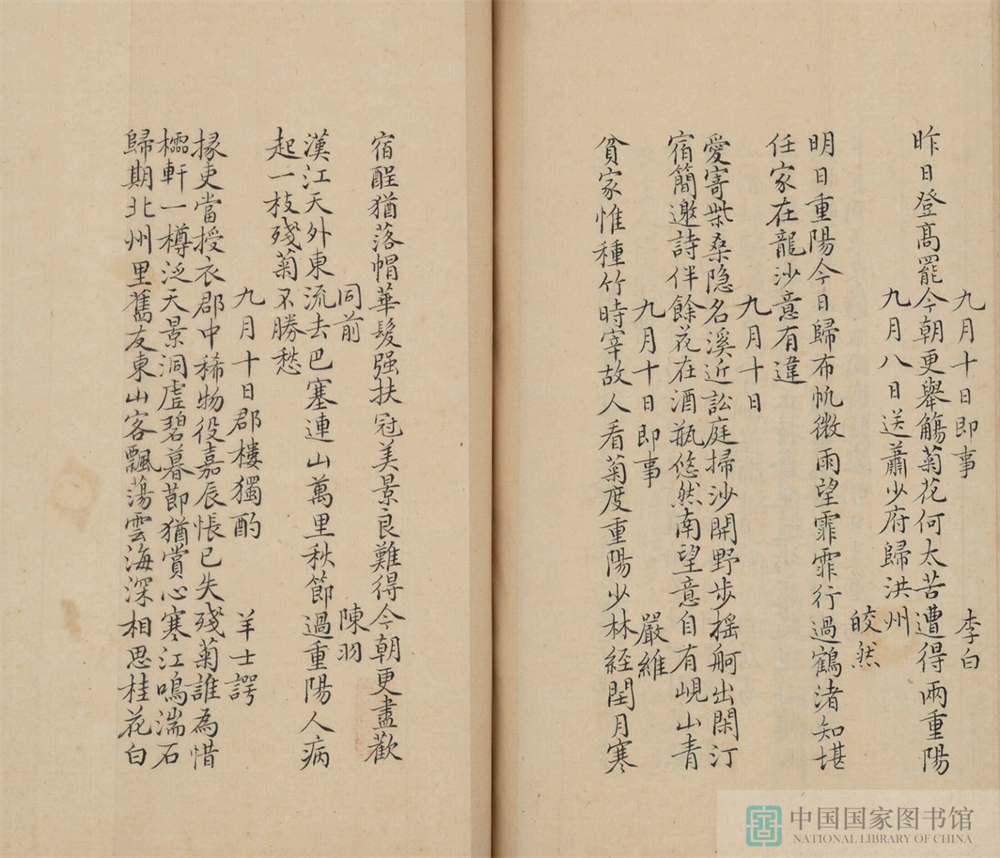 九月十日即事 李白
昨日登髙罷今朝更舉觴菊花何太苦遭得兩重陽
九月八日送蕭少府歸洪州
皎然
明日重陽今日歸布帆微雨望霏霏行過鶴渚知堪
任家在龍沙意有違
九月十日
愛寄柴桑隐名溪近訟庭掃沙開野步摇舸出閑汀
宿簡邀詩伴餘花在酒瓶悠然南望意自有峴山青
九月十日即事 嚴維
貧家惟種竹時宰故人看菊度重陽少林経閏月寒
宿酲猶落帽華髮强扶冠美景良難得今朝更盡歡
同前 陳羽
漢江天外東流去巴塞連山萬里秋節過重陽人病
起一枝殘菊不勝愁
九月十日郡樓獨酌 羊士諤
掾吏當授衣郡中稀物役嘉辰悵已失殘菊誰為惜
櫺軒一樽泛天景洞虚碧暮節猶賞心寒江鳴湍石
歸期北州里舊友東山客飄蕩雲海深相思桂花白
中国国家图书馆
NATIONAL LIBRARY OF CHINA